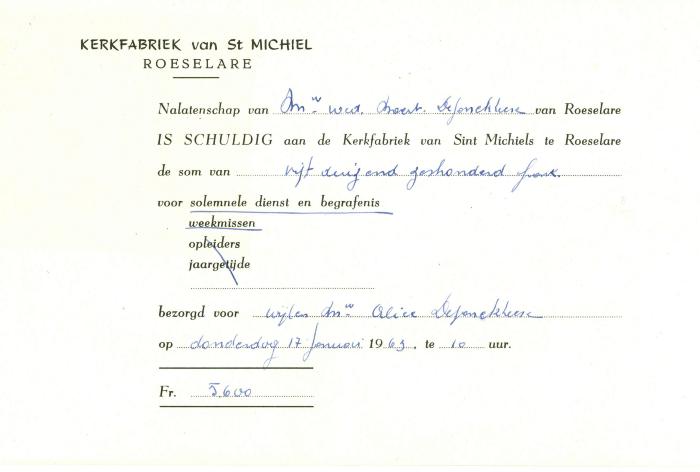 KERKFABRIEK van St MICHIEL
ROESELARE
Nalatenschap van Mw wed. Dejonckheere van Roeselare
IS SCHULDIG aan de Kerkfabriek van Sint Michiels te Roeselare
de som van vijf duizend zeshonderd frank.
voor solemnele dienst en begrafenis
weekmissen
opleiders
jaargetijde
bezorgd voor wijlen Mw Alice Dejonckheere
op donderdag 17 Januari 1963, te 10 uur.
Fr. 5.600